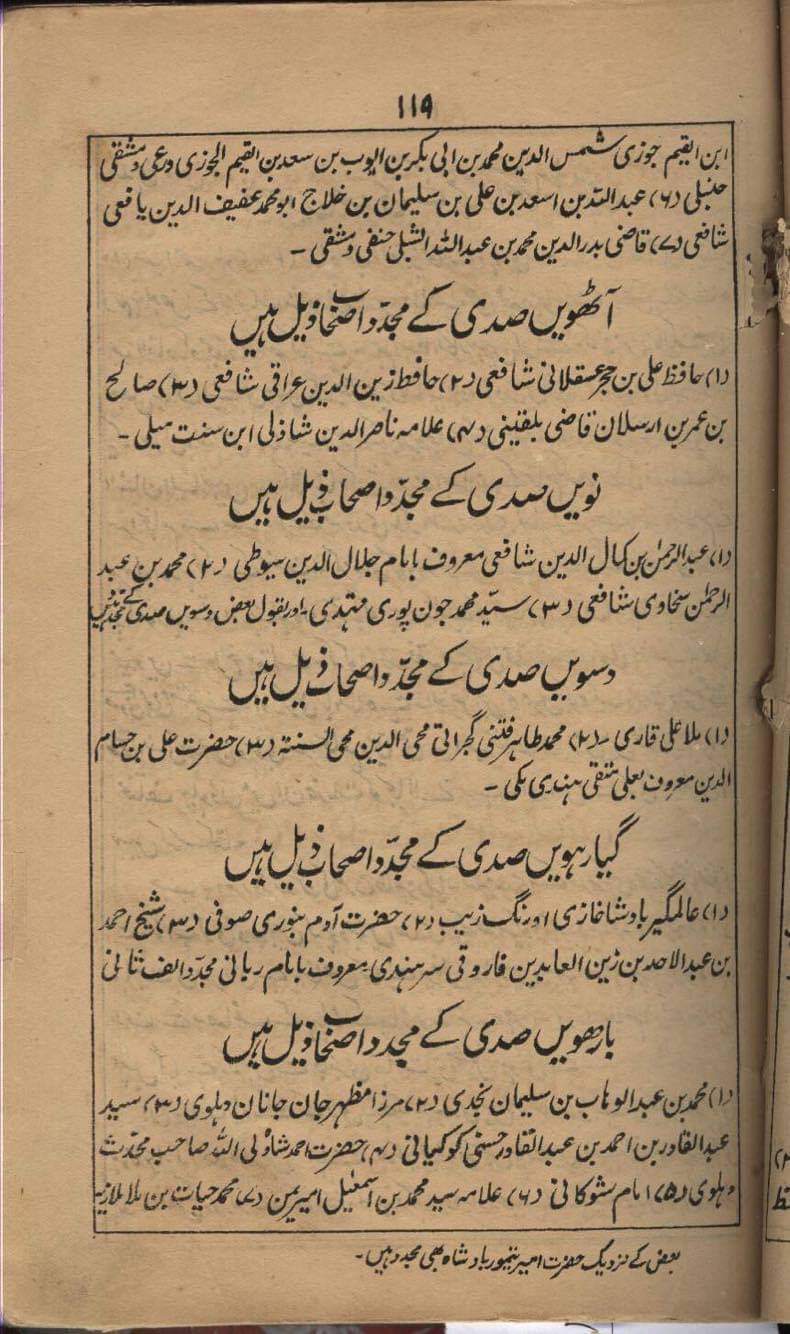 ۱۱۹
ابن القیم جوزی شمس الدین محمد بن ابی بکر بن ایوب بن سعد بن القیم الجوزی درعی دمشقی
حنبلی (۶) عبد اللہ بن اسعد بن علی بن سلیمان بن خلاج ابو محمد عفیف الدین یافعی
شافعی (۷) قاضی بدر الدین محمد بن عبد اللہ الشبلی حنفی دمشقی ۔
آٹھویں صدی کے مجدد اصحاب ذیل ہیں
(۱) حافظ علی بن حجر عسقلانی شافعی (۲) حافظ زین الدین عراقی شافعی (۳) صالح
بن عمر بن ارسلان قاضی بلقینی (۴) علامہ ناصر الدین شاذلی ابن سنت میلی ۔
نویں صدی کے مجدد اصحاب ذیل ہیں
(۱) عبد الرحمٰن بن کمال الدین شافعی معروف بامام جلال الدین سیوطی (۲) محمد بن عبد
الرحمٰن سخاوی شافعی (۳) سید محمد جون پوری مہتدی ۔ اور بقول بعض دسویں صدی کے مجدد ہیں
دسویں صدی کے مجدد اصحاب ذیل ہیں
(۱) ملا علی قاری ۔ (۲) محمد طاہر فتنی گجراتی محی الدین محی السنۃ (۳) حضرت علی بن حسام
الدین معروف بعلی متقی ہندی مکی ۔
گیارہویں صدی کے مجدد اصحاب ذیل ہیں
(۱) عالمگیر بادشاہ غازی اورنگ زیب (۲) حضرت آدم بنوری صوفی (۳) شیخ احمد
بن عبد الاحد بن زین العابدین فاروقی سرہندی معروف بامام ربانی مجدد الف ثانی
بارھویں صدی کے مجدد اصحاب ذیل ہیں
(۱) محمد بن عبد الوہاب بن سلیمان نجدی (۲) مرزا مظہر جان جاناں دہلوی (۳) سید
عبد القادر بن احمد بن عبد القادر حسنی کوکیانی (۴) حضرت احمد شاہ ولی اللہ صاحب محدث
دہلوی (۵) امام شوکانی (۶) علامہ سید محمد بن اسمٰعیل امیر یمن (۷) محمد حیات بن ملا ملازیہ
بعض کے نزدیک حضرت امیر تیمور بادشاہ بھی مجدد ہیں ۔